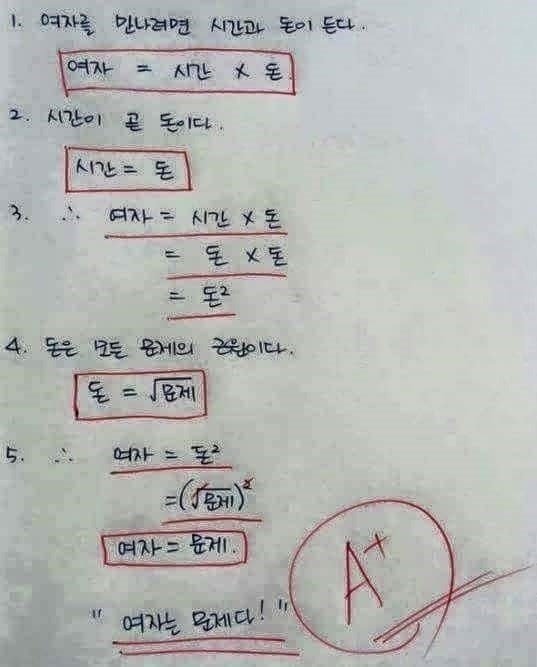 1. 여자를 만나려면 시간과 돈이 든다.
여자 = 시간 x 돈.
2. 시간이 곧 돈이다.
시간 = 돈
3. ∴ 여자 = 시간 x 돈
= 돈 x 돈
= 돈²
4. 돈은 모든 문제의 근원이다.
돈 = √문제
5. ∴ 여자 = 돈²
=(√문제)²
여자 = 문제.
A+
" 여자는 문제다! "